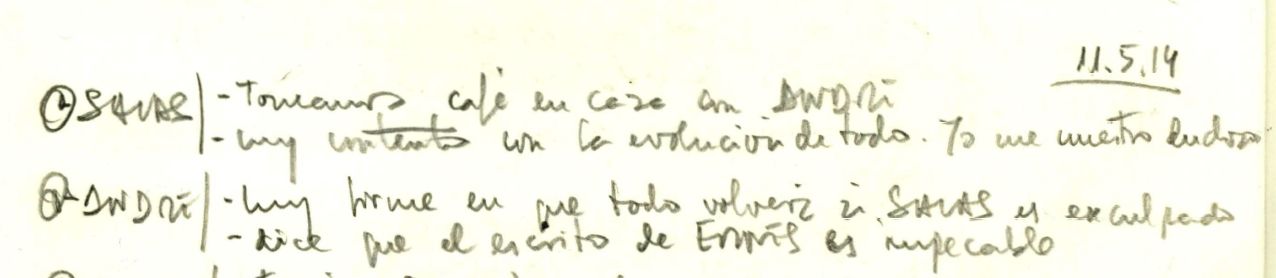 11.5.14
① SALAS | - Tomamos café en casa con ANDRÉ
- muy contento con la evolución de todo. Yo me muestro dudoso
② ANDRÉ | - muy firme en que todo volverá si SALAS es exculpado
- dice que el escrito de es impecable